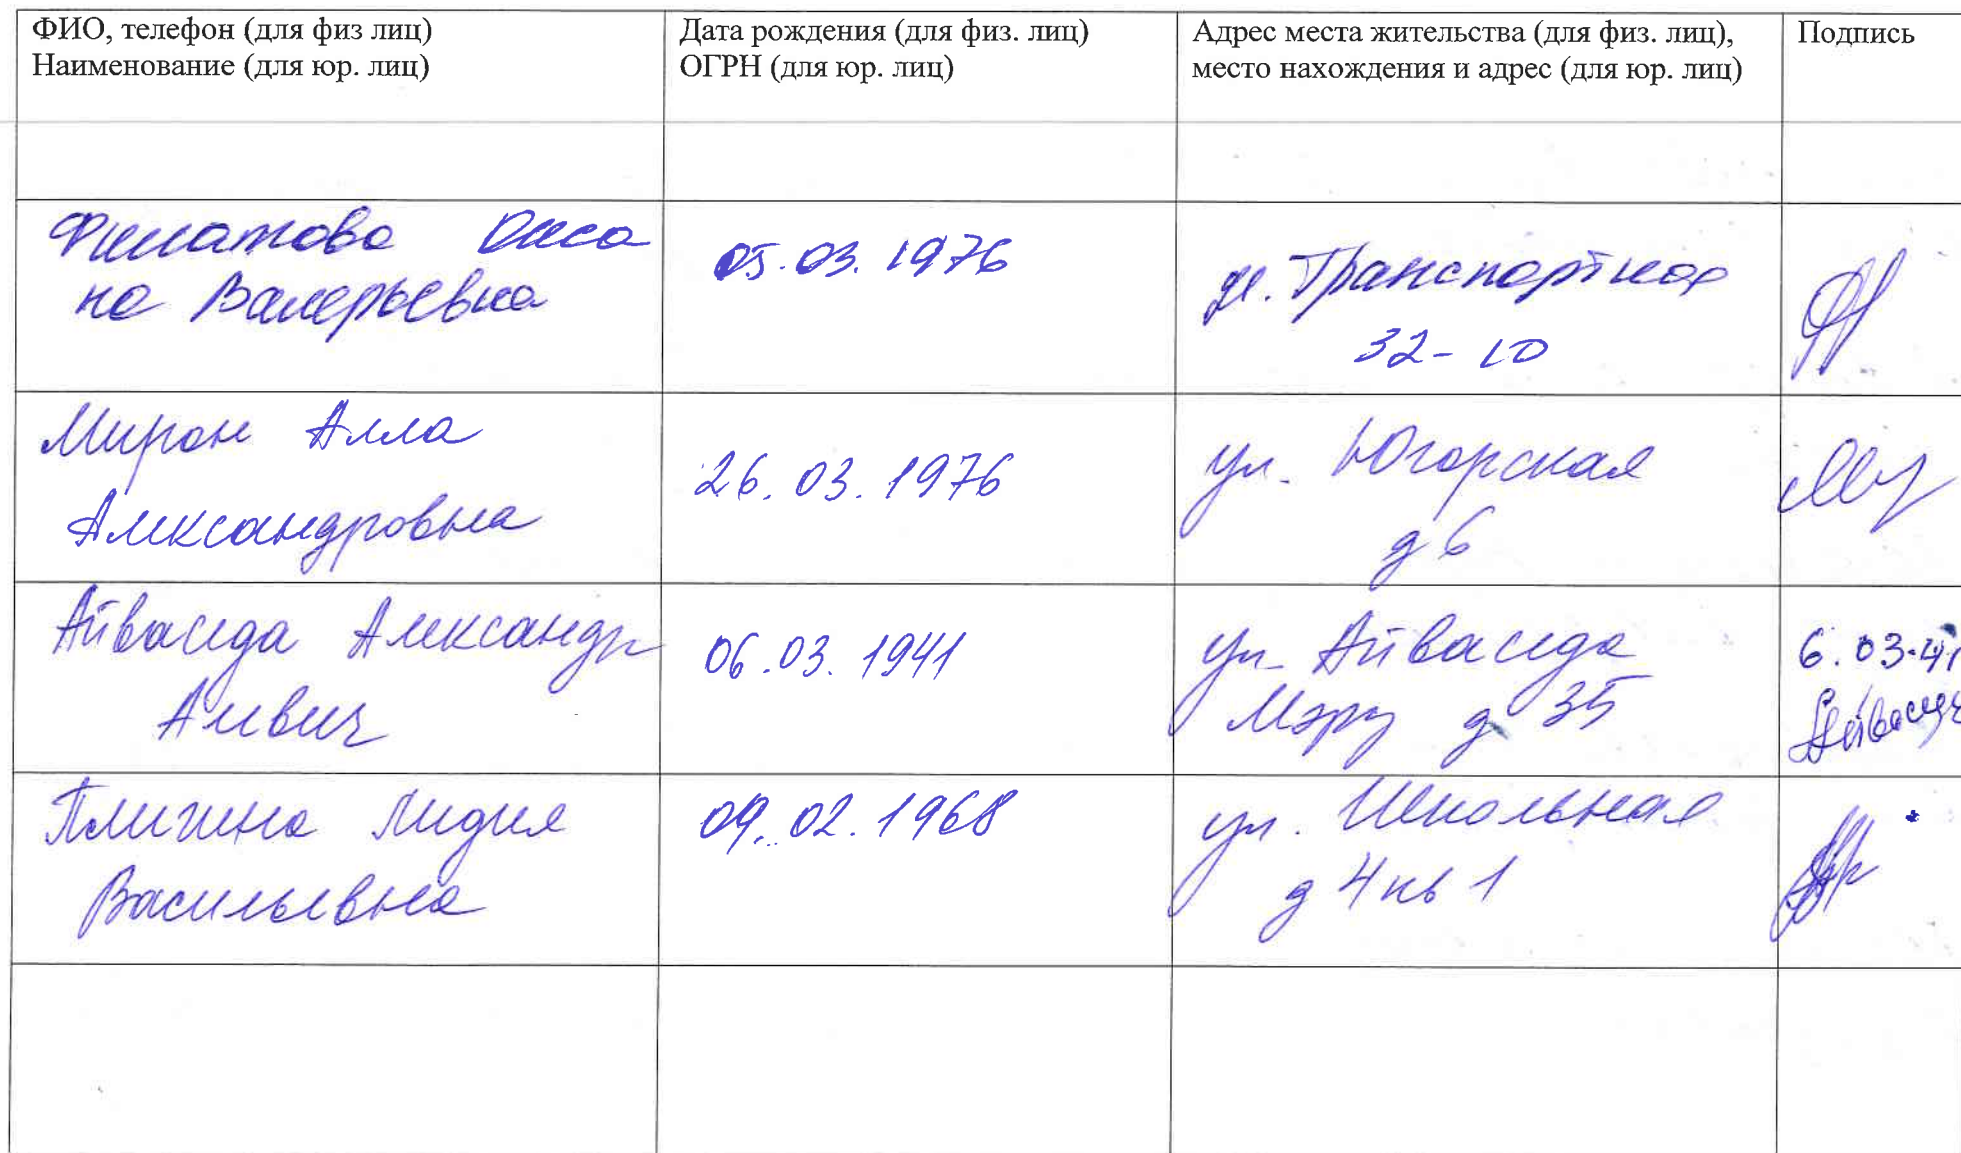 ФИО, телефон (для физ лиц)
Наименование (для юр. лиц)
Дата рождения (для физ. лиц)
ОГРН (для юр. лиц)
Адрес места жительства (для физ. лиц),
место нахождения и адрес (для юр. лиц)
Подпись
Филатова Окса
на Валерьевна
05.03.1976
ул. Транспортная
32-10
Мирон Алла
Александровна
26.03.1976
ул. Югорская
д 6
Айваседа Александр
Аивич
06.03.1941
ул. Айваседа
Мэру д 35
6.03.41
Айваседа
Плигина Лидия
Васильевна
09.02.1968
ул. Школьная
д 4 кв 1